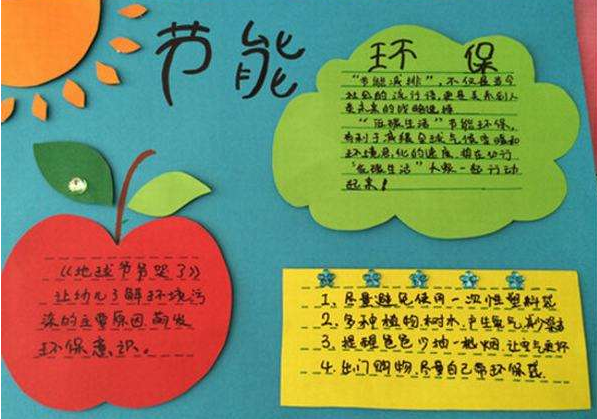 节能
环 保
“节能减排”，不仅是当今
社会的流行语，更是关系到人
类未来的战略选择
“低碳生活”节能环保，
有利于减缓全球气候变暖和
环境恶化的速度
“低碳生活”人类一起行动
起来！
《地球爷爷哭了》
让幼儿了解环境污
染的主要原因，萌发
环保意识。
1、尽量避免使用一次性塑料袋
2、多种植物、树木，产生氧气，减少
3、提醒爸爸少抽一根烟，让空气
4、出门购物，尽量自己带环保袋